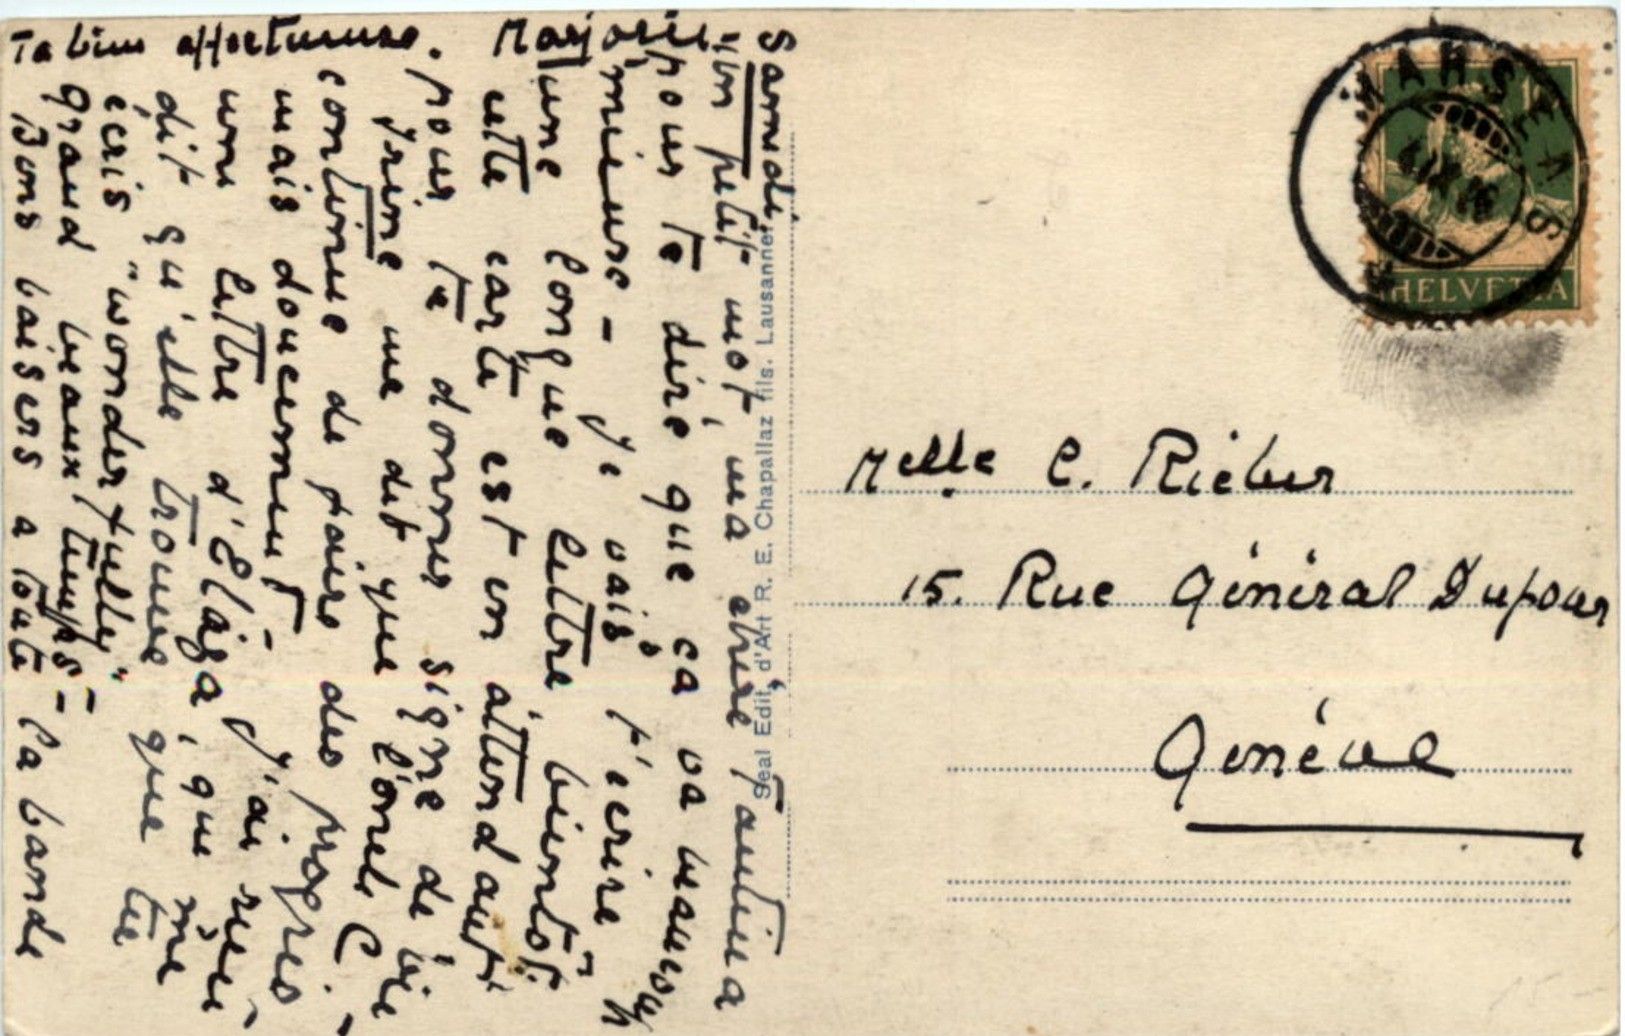 Samedi,
Un petit mot, ma chère Tantina
pour te dire que ça va beaucoup
mieux - Je vais t'écrire
une longue lettre bientôt,
cette carte est en attendant
pour te donner signe de vie
Irène me dit que l'oncle C.
continue de faire des progrès -
mais doucement - J'ai reçu
une lettre d'Elaga, qui me
dit qu'elle trouve que tu
écris "wonderfully"
grand beaux temps -
Bons baisers a toute la bande
Ta bien affectueuse. Marjorie
Seal Edit. d'Art R. E. Chapallaz fils. Lausanne.
HELVETIA
Melle C. Rieber
15. Rue Général Dufour
Genève